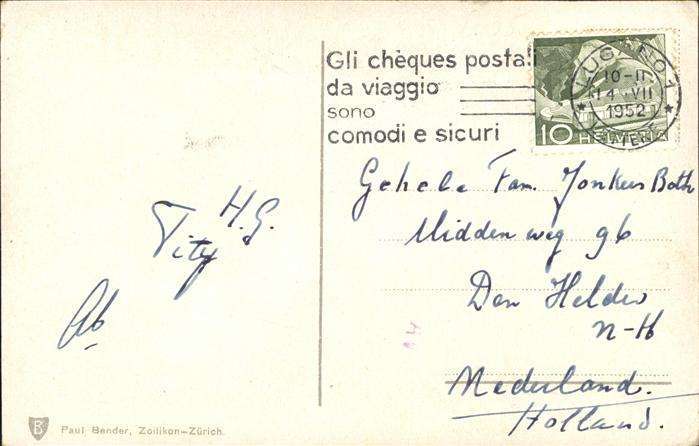 Gli chèques postali
da viaggio
sono
comodi e sicuri
LUGANO 1
10-11
14.VII
1952
10 HELVETIA
Gehele Fam. Jonkers Both
Middenweg 96
Den Helder
N-H
Nederland.
Holland.
H.G.
Tity
Ab
B
Paul Bender, Zollikon-Zürich.